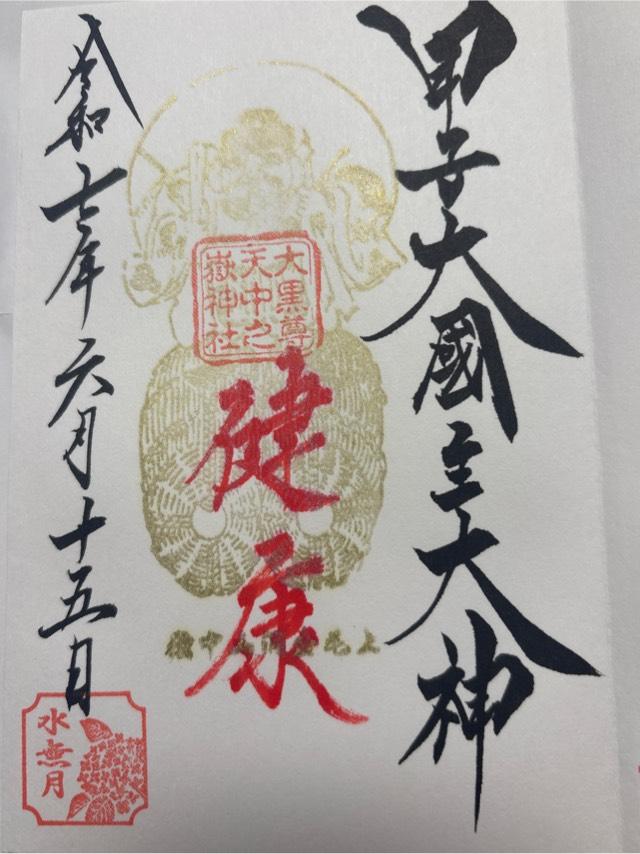 甲子大國主大神
大黒尊
天中之
嶽神社
健康
令和七年六月十五日
水無月